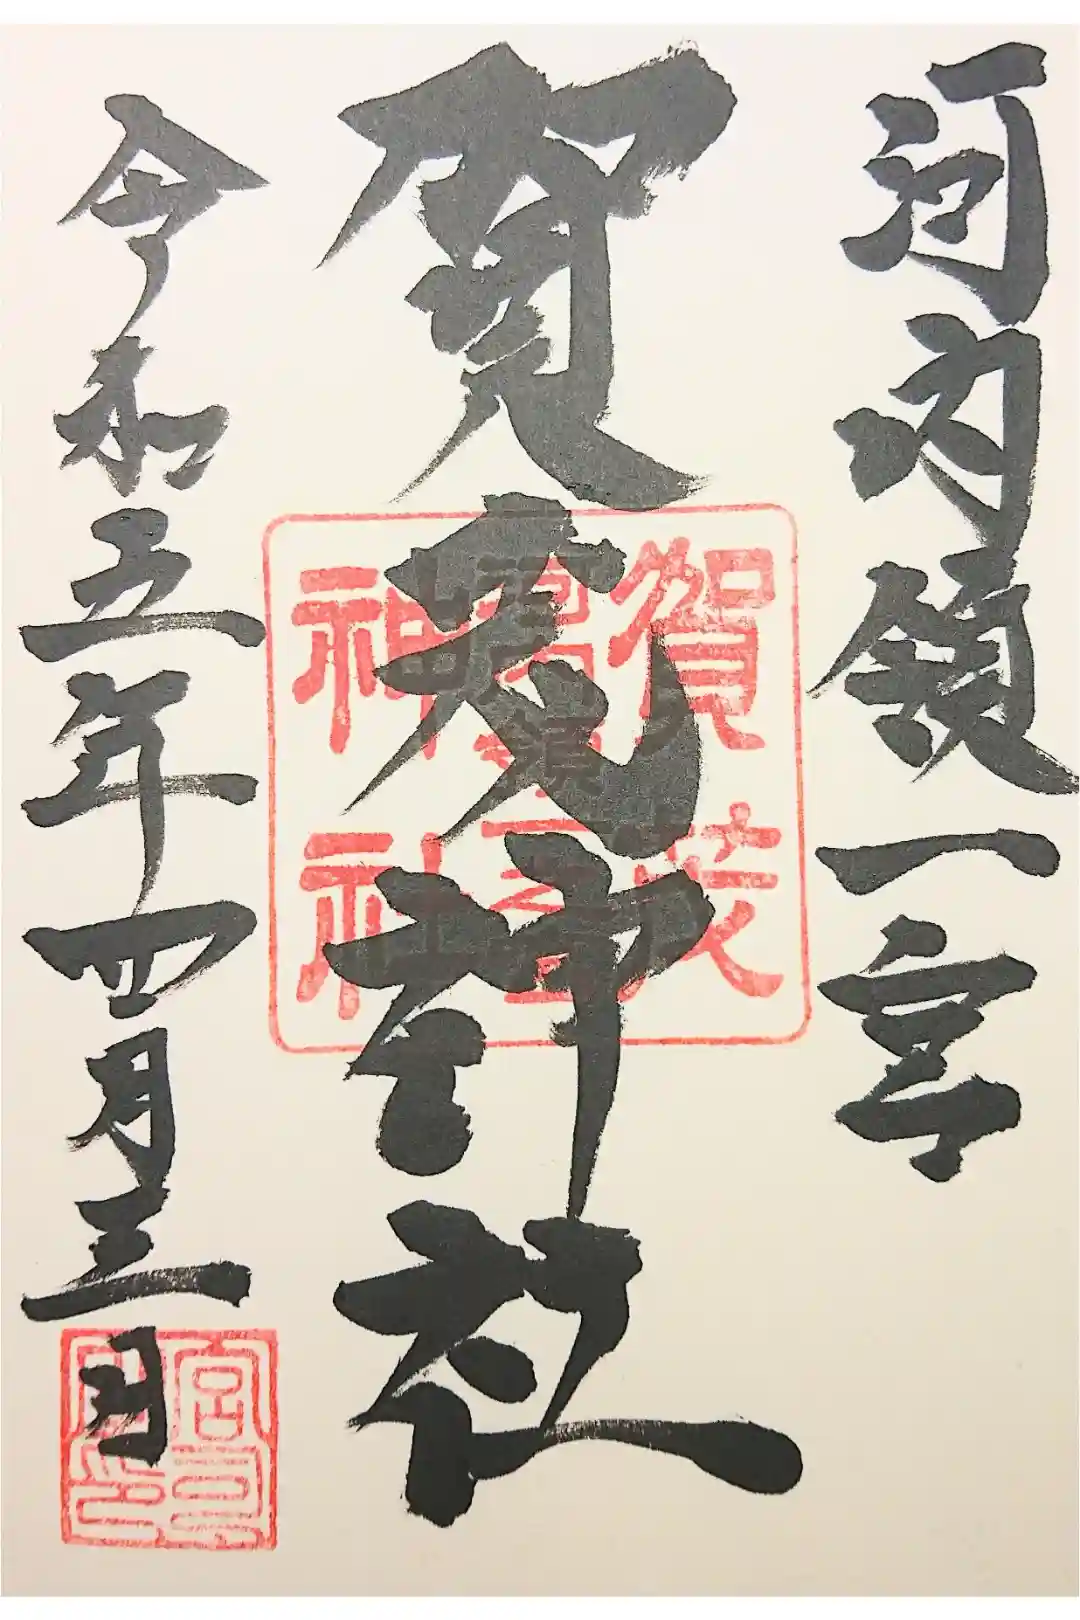 河内領一宮
賀茂神社
令和五年四月三日
賀茂
神社